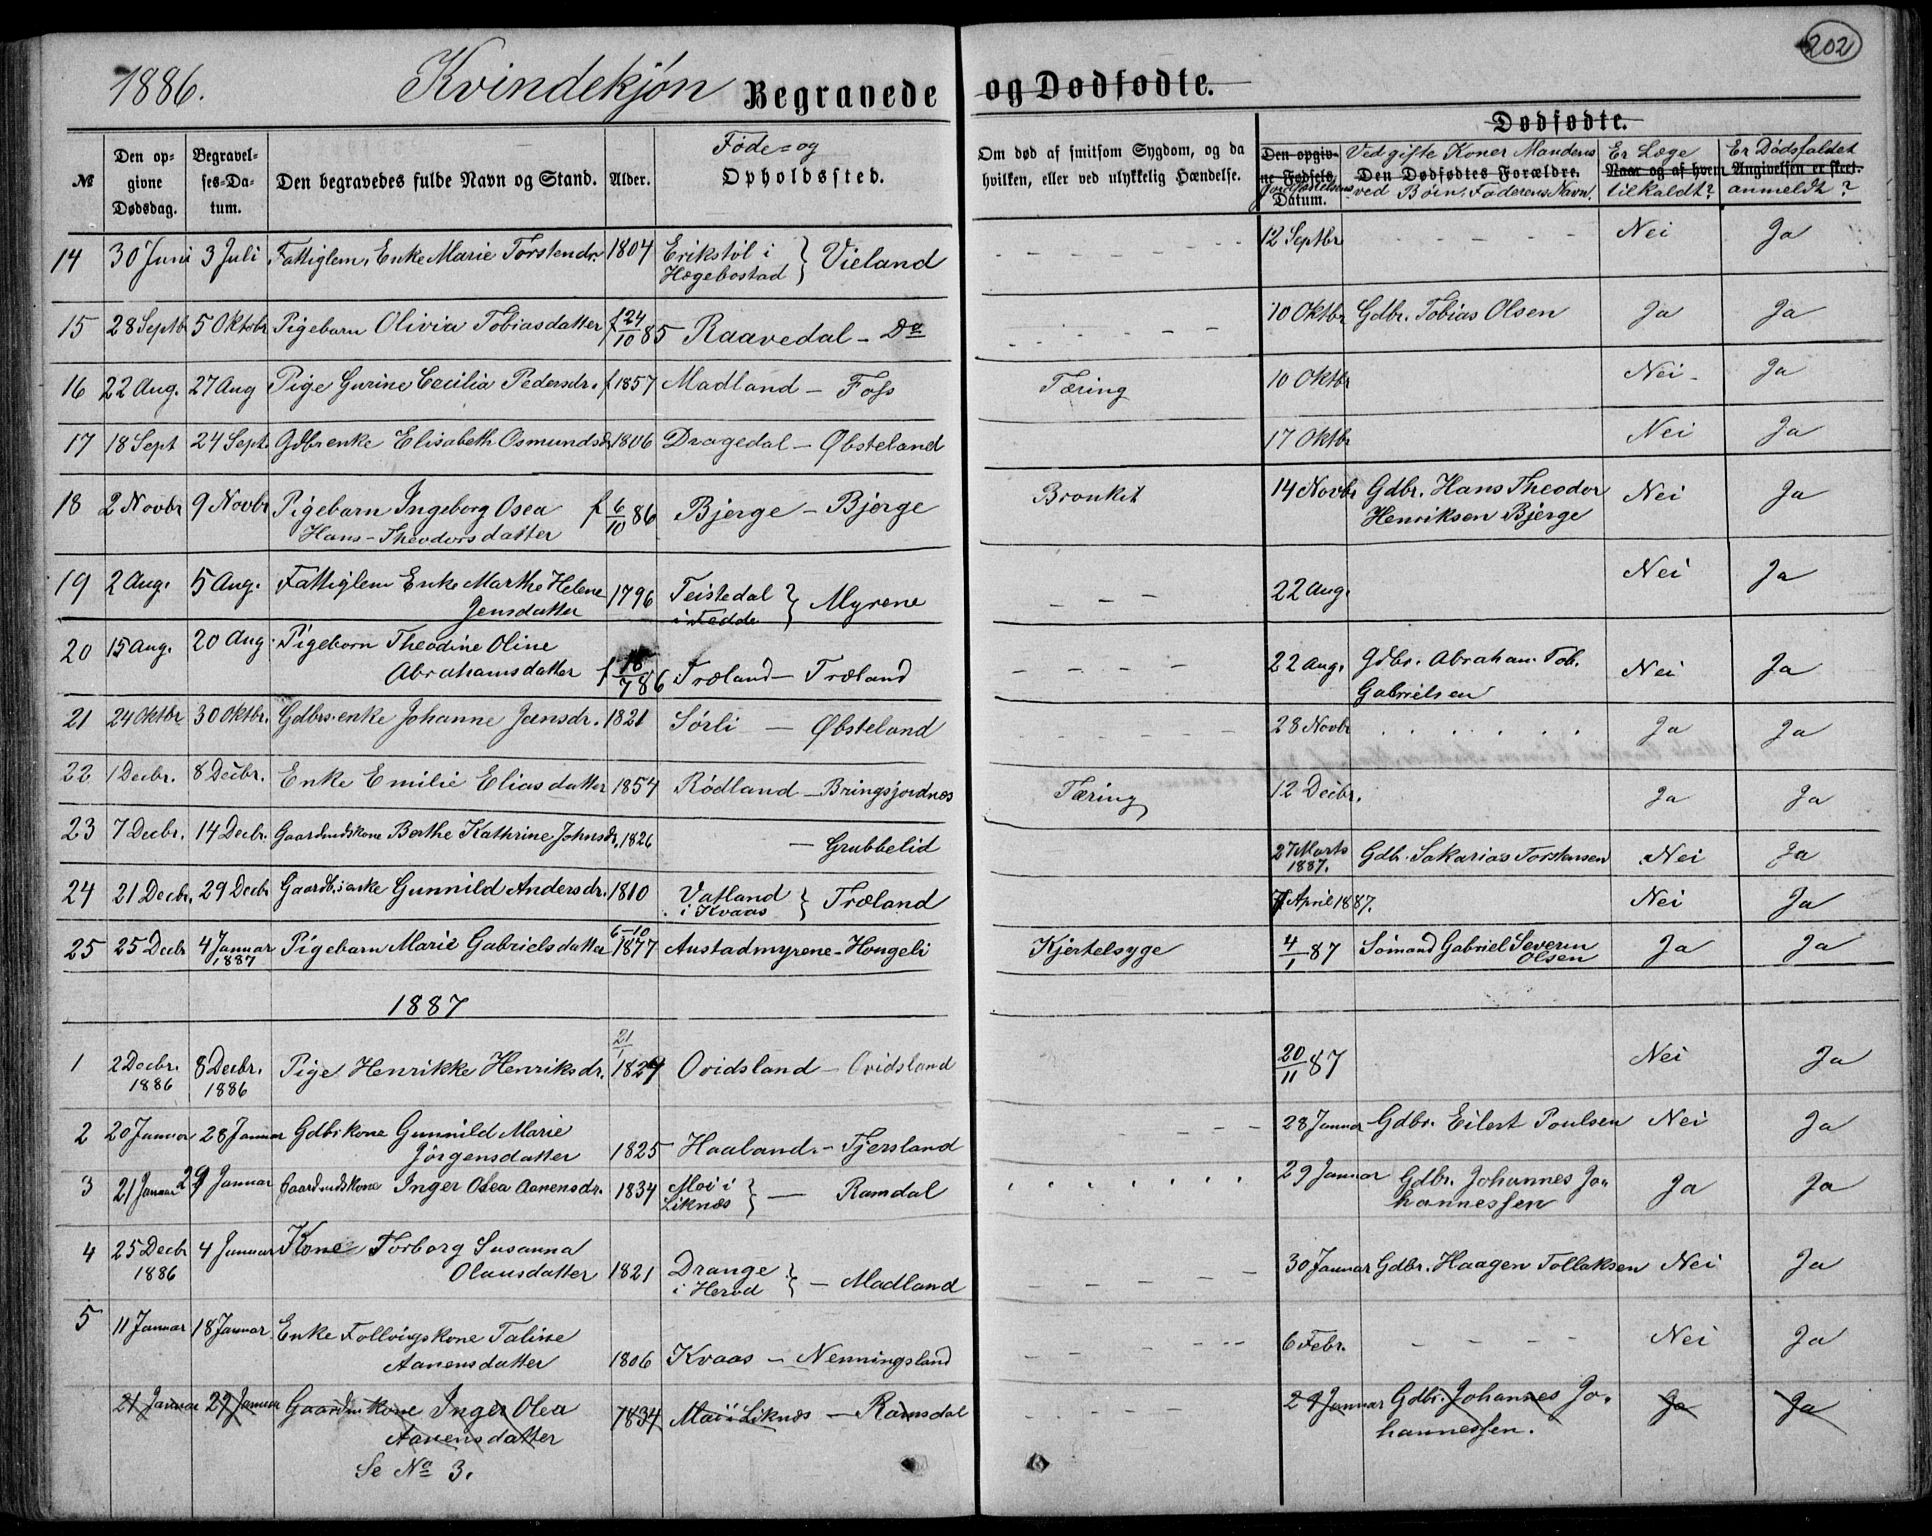 202
1886. Kvindekjøn Begravede og Dødfødte.
Dødfødte.
№ | Den opgivne Dødsdag. | Begravelses-Datum. | Den begravedes fulde Navn og Stand. | Alder. | Føde- og Opholdssted. | Om død af smitsom Sygdom, og da hvilken, eller ved ulykkelig Hændelse. | Den opgivne Fødsels Datum. | Ved gifte Koner Mandens Den Dødfødtes Forældre. ved Børn, Faderens Navn. | Er Læge Naar og af hvem tilkaldt? | Er Dødsfaldet Angivelsen er skeet. anmeldt?
14 | 30 Juni | 3 Juli | Fattiglem, Enke Marie Torstendr. | 1804 | Erikstøl i Hægebostad } Vieland | - - - - | 12 Septbr | - - - - | Nei | Ja
15 | 28 Septb | 5 Oktobr | Pigebarn Olivia Tobiasdatter | f 24/10 85 | Raavedal - Do | - - - - | 10 Oktbr | Gdbr. Tobias Olsen | Ja | Ja
16 | 22 Aug. | 27 Aug | Pige Gurine Cecilia Pedersdr. | f 1857 | Madland - Foss | Tæring | 10 Oktbr | | Nei - | Ja
17 | 18 Sept | 24 Sept. | Gdbrenke Elisabeth Osmundsdr | 1806 | Dragedal - Øbsteland | | 17 Oktbr | | Nei | Ja
18 | 2 Novbr | 9 Novbr | Pigebarn Ingeborg Osea Hans-Theodorsdatter | f 6/10 86 | Bjerge - Bjerge | Bronkit | 14 Novbr | Gdbr. Hans Theodor Henriksen Bjerge | Nei | Ja
19 | 2 Aug. | 5 Aug. | Fattiglem Enke Marthe Helene Jensdatter | 1796 | Teistedal i Fedde } Myrene | - - - | 22 Aug. | | Nei | Ja
20 | 15 Aug. | 20 Aug | Pigebarn Theodine Oline Abrahamsdatter | /7 86 | Træland - Træland | - - - - | 22 Aug. | Gdbr. Abraham Tob. Gabrielsen | Nei | Ja
21 | 24 Oktbr | 30 Oktbr. | Gdbrs.enke Johanne Jansdr. | 1821 | Sørli - Øbsteland | | 28 Novbr | . . . . . . | Ja | Ja
22 | 1 Decbr. | 8 Decbr. | Enke Emilie Eliasdatter | 1854 | Rødland - Bringsjordnes | Tæring | 12 Decbr. | | Ja | Ja
23 | 7 Decbr. | 14 Decbr. | Gaardmdskone Berthe Kathrine Johnsdr. | 1826 | - Grubbelid | | 27 Marts 1887. | Gdb. Sakarias Torstensen | Nei | Ja
24 | 21 Decbr. | 29 Decbr | Gaardb.enke Gunnild Andersdr. | 1810 | Vatland i Kvaas } Træland | | April 1887. | | Nei | Ja
25 | 25 Decb | 4 Januar 1887 | Pigebarn Marie Gabrielsdatter | 6-10 1877 | Austadmyrene - Hongeli | Kjertelsyge | 4/1 87 | Sømand Gabriel Severin Olsen | Ja | Ja
1887
1 | 2 Decbr. 1886 | 8 Decbr. 1886 | Pige Henrikke Henriksdr. | 21/1 1824 | Ovidsland - Ovidsland | | 20/11 87 | | Nei | Ja
2 | 20 Januar | 28 Januar | Gdbrkone Gunnild Marie Jørgensdatter | 1825 | Haaland - Tjersland | - - - | 28 Januar | Gdbr. Eilert Poulsen | Nei | Ja
3 | 21 Januar | 29 Januar | Gaardmdskone Inger Olea Aanensdr. | 1834 | Moi i Liknæs } - Ramdal | . . . . . . | 29 Januar | Gdbr. Johannes Johannessen | Ja | Ja
4 | 25 Decbr 1886 | 4 Januar | Kone Torborg Susanna Olausdatter | 1821 | Drange i Herød } - Madland | - - - - | 30 Januar | Gdbr. Haagen Tollaksen | Nei | Ja
5 | 11 Januar | 18 Januar. | Enke Follvigskone Taline Aanensdatter | 1806 | Kvaas - Nenningsland | - - - - | 6 Febr. | - - - - | Nei | Ja
21 Januar | 29 Januar | Gaardmkone Inger Olea Aanensdatter | 1834 | Moi i Liknæs - Ramsdal | - - - - | 29 Januar | Gdbr. Johannes Johannessen. | Ja | Ja
Se No 3.